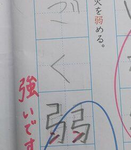 火を弱める。
ごく
弱
強いです